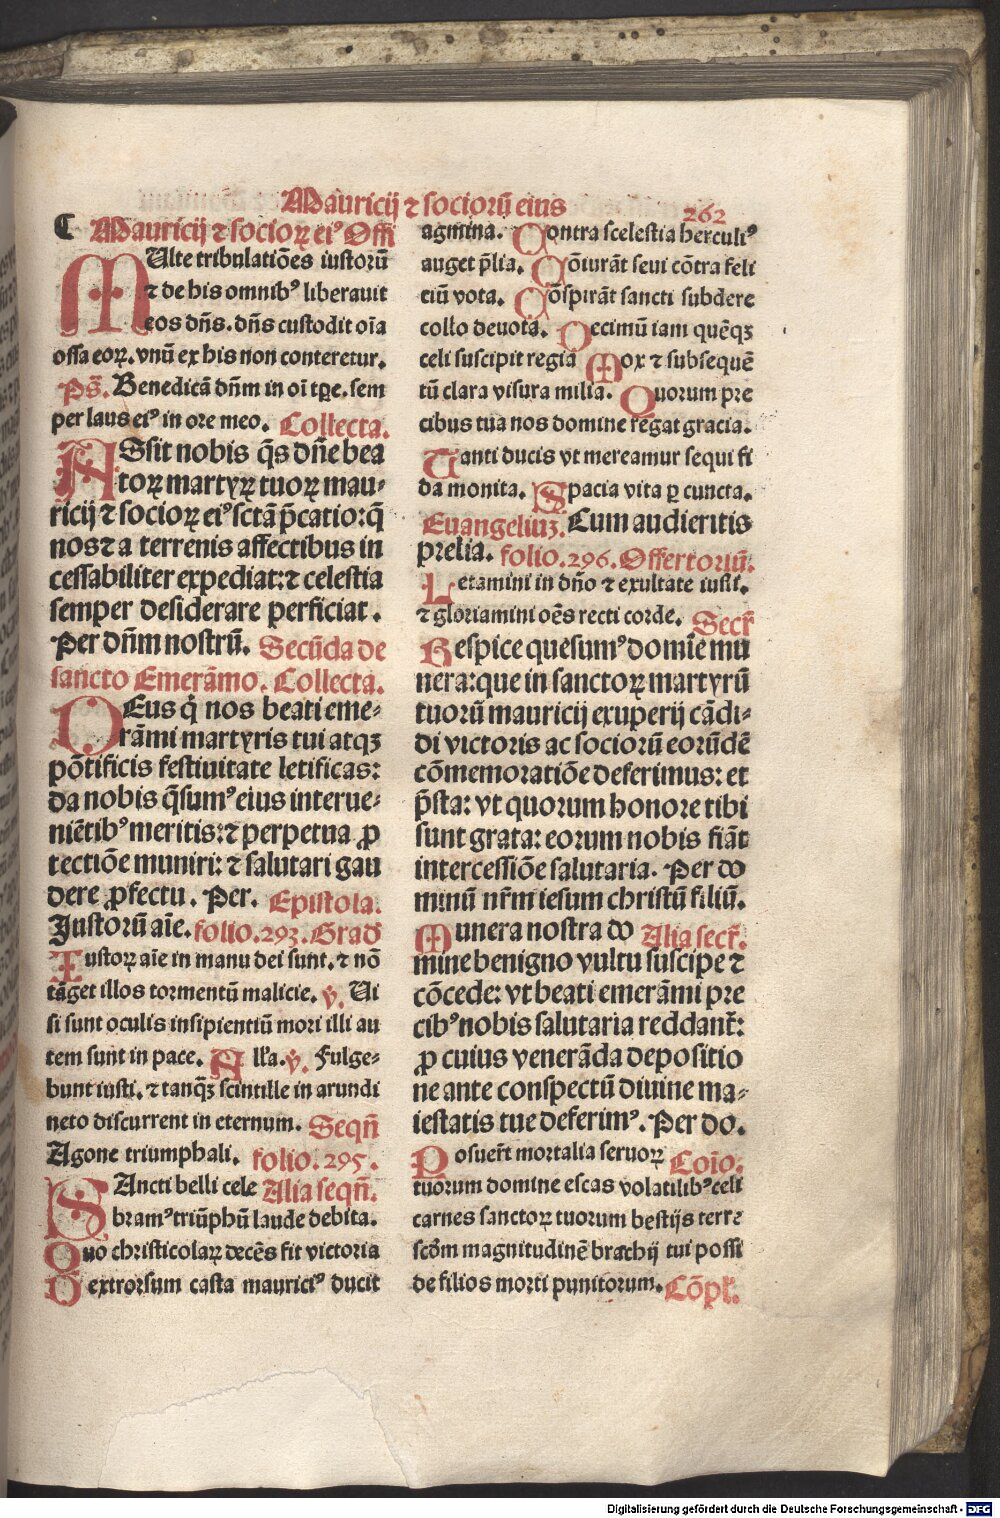 Mauricij ⁊ sociorū eius
262
Mauricij ⁊ socioꝝ ei⁹ Offi
MUlte tribulatiōes iustorū
⁊ de his omnib⁹ liberauit
eos dn̄s. dn̄s custodit oīa
ossa eoꝝ. vnū ex his non conteretur.
Ps̄. Benedicā dn̄m in oī tꝑe. sem
per laus ei⁹ in ore meo. Collecta.
ASsit nobis q̄s dn̄e bea
toꝝ martyꝝ tuoꝝ mau⸗
ricij ⁊ socioꝝ ei⁹ sctā p̄catio: q̄
nos ⁊ a terrenis affectibus in
cessabiliter expediat: ⁊ celestia
semper desiderare perficiat.
Per dn̄m nostrū. Secūda de
sancto Emerāmo. Collecta.
DEus q̇ nos beati eme⸗
rāmi martyris tui atqꝫ
pōtificis festiuitate letificas:
da nobis q̄sum⁹ eius interue⸗
niētib⁹ meritis: ⁊ perpetua ꝓ
tectiōe muniri: ⁊ salutari gau
dere ꝓfectu. Per. Epistola.
Justorū aīe. folio. 293. Grad̄
Iustoꝝ aīe in manu dei sunt. ⁊ nō
tāget illos tormentū malicie. v̄. Ui
si sunt oculis insipientiū mori illi au
tem sunt in pace. All'a. v̄. Fulge⸗
bunt iusti. ⁊ tanqꝫ scintille in arundi
neto discurrent in eternum. Seqn̄
Agone triumphali. folio. 295.
SAncti belli cele Alia seqn̄.
bram⁹ triūphū laude debita.
Quo christicolaꝝ decēs fit victoria
Dextrorsum casta maurici⁹ ducit
agmina. Contra scelestia herculi⁹
auget p̄lia. Cōiurāt seui cōtra feli
ciū vota. Cōspirāt sancti subdere
collo deuota. Decimū iam quēqꝫ
celi suscipit regia Mox ⁊ subsequē
tū clara visura milia. Quorum pre
cibus tua nos domine regat gracia.
Tanti ducis vt mereamur sequi fi
da monita. Spacia vita ꝑ cuncta.
Euangeliuꝫ. Cum audieritis
prelia. folio. 296. Offertoriū.
Letamini in dn̄o ⁊ exultate iusti.
⁊ gloriamini oēs recti corde. Secr̄
Respice quesum⁹ domīe mu
nera: que in sanctoꝝ martyrū
tuorū mauricij exuperij cādi⸗
di victoris ac sociorū eorūdē
cōmemoratiōe deferimus: et
p̄sta: vt quorum honore tibi
sunt grata: eorum nobis fiāt
intercessiōe salutaria. Per do
minū nr̄m iesum christū filiū.
Munera nostra do Alia secr̄.
mine benigno vultu suscipe ⁊
cōcede: vt beati emerāmi pre
cib⁹ nobis salutaria reddant̄:
ꝓ cuius venerāda depositio
ne ante conspectū diuine ma⸗
iestatis tue deferim⁹. Per do.
Posuer̄t mortalia seruoꝝ Coīo.
tuorum domine escas volatilib⁹ celi
carnes sanctoꝝ tuorum bestijs terre
scōm magnitudinē brachij tui possi
de filios morti punitorum. Cōpl̄.
Digitalisierung gefördert durch die Deutsche Forschungsgemeinschaft - DFG